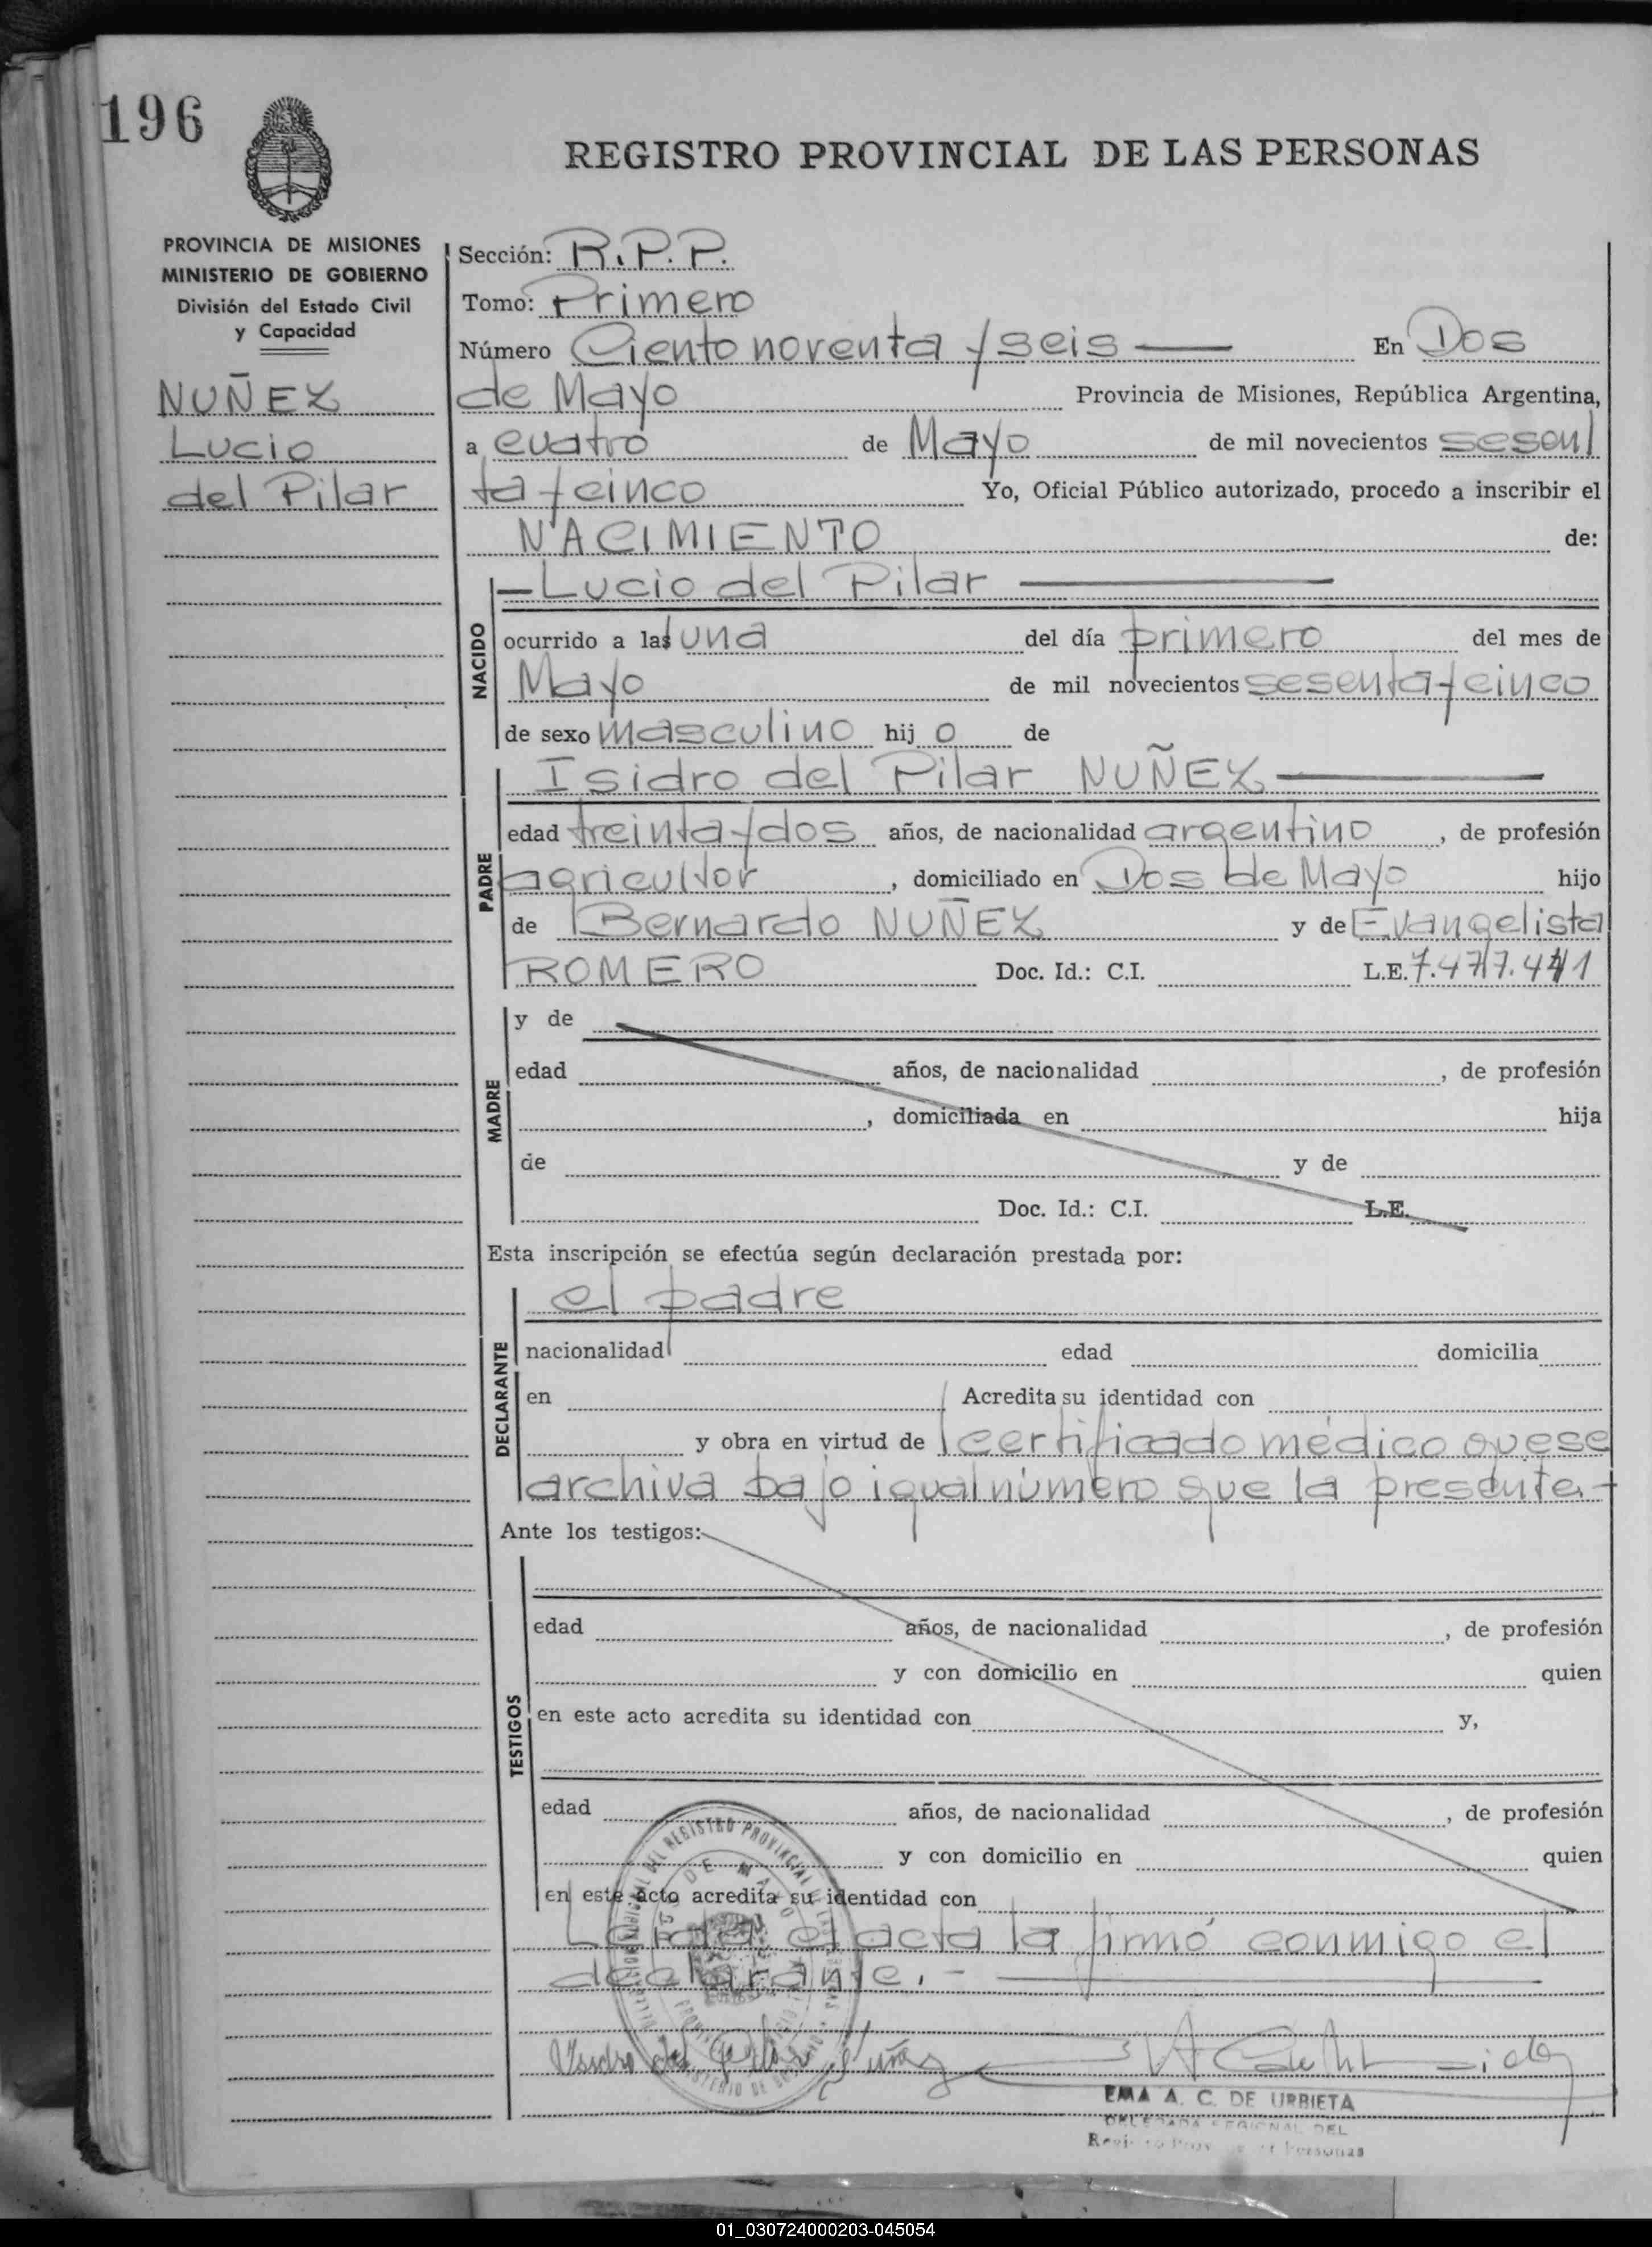 196
REGISTRO PROVINCIAL DE LAS PERSONAS
PROVINCIA DE MISIONES
MINISTERIO DE GOBIERNO
División del Estado Civil
y Capacidad
NUÑEZ
Lucio
del Pilar
Sección: R.P.P.
Tomo: Primero
Número Ciento noventa y seis — En Dos
de Mayo Provincia de Misiones, República Argentina,
a cuatro de Mayo de mil novecientos sesen
ta y cinco Yo, Oficial Público autorizado, procedo a inscribir el
NACIMIENTO de:
NACIDO
— Lucio del Pilar —
ocurrido a las una del día primero del mes de
Mayo de mil novecientos sesenta y cinco
de sexo masculino hijo de
PADRE
Isidro del Pilar NUÑEZ —
edad treinta y dos años, de nacionalidad argentino, de profesión
agricultor, domiciliado en Dos de Mayo hijo
de Bernardo NUÑEZ y de Evangelista
ROMERO Doc. Id.: C.I. L.E. 7.477.441
MADRE
y de
edad años, de nacionalidad , de profesión
, domiciliada en hija
de y de
Doc. Id.: C.I. L.E.
Esta inscripción se efectúa según declaración prestada por:
DECLARANTE
el padre
nacionalidad edad domicilia
en Acredita su identidad con
y obra en virtud de certificado médico que se
archiva bajo igual número que la presente.-
Ante los testigos:
TESTIGOS
edad años, de nacionalidad , de profesión
y con domicilio en quien
en este acto acredita su identidad con y,
edad años, de nacionalidad , de profesión
y con domicilio en quien
en este acto acredita su identidad con
Leída el acta la firmó conmigo el
declarante.- —
Isidro del Pilar Nuñez
EMA A. C. DE URBIETA
DELEGADA REGIONAL DEL
01_030724000203-045054